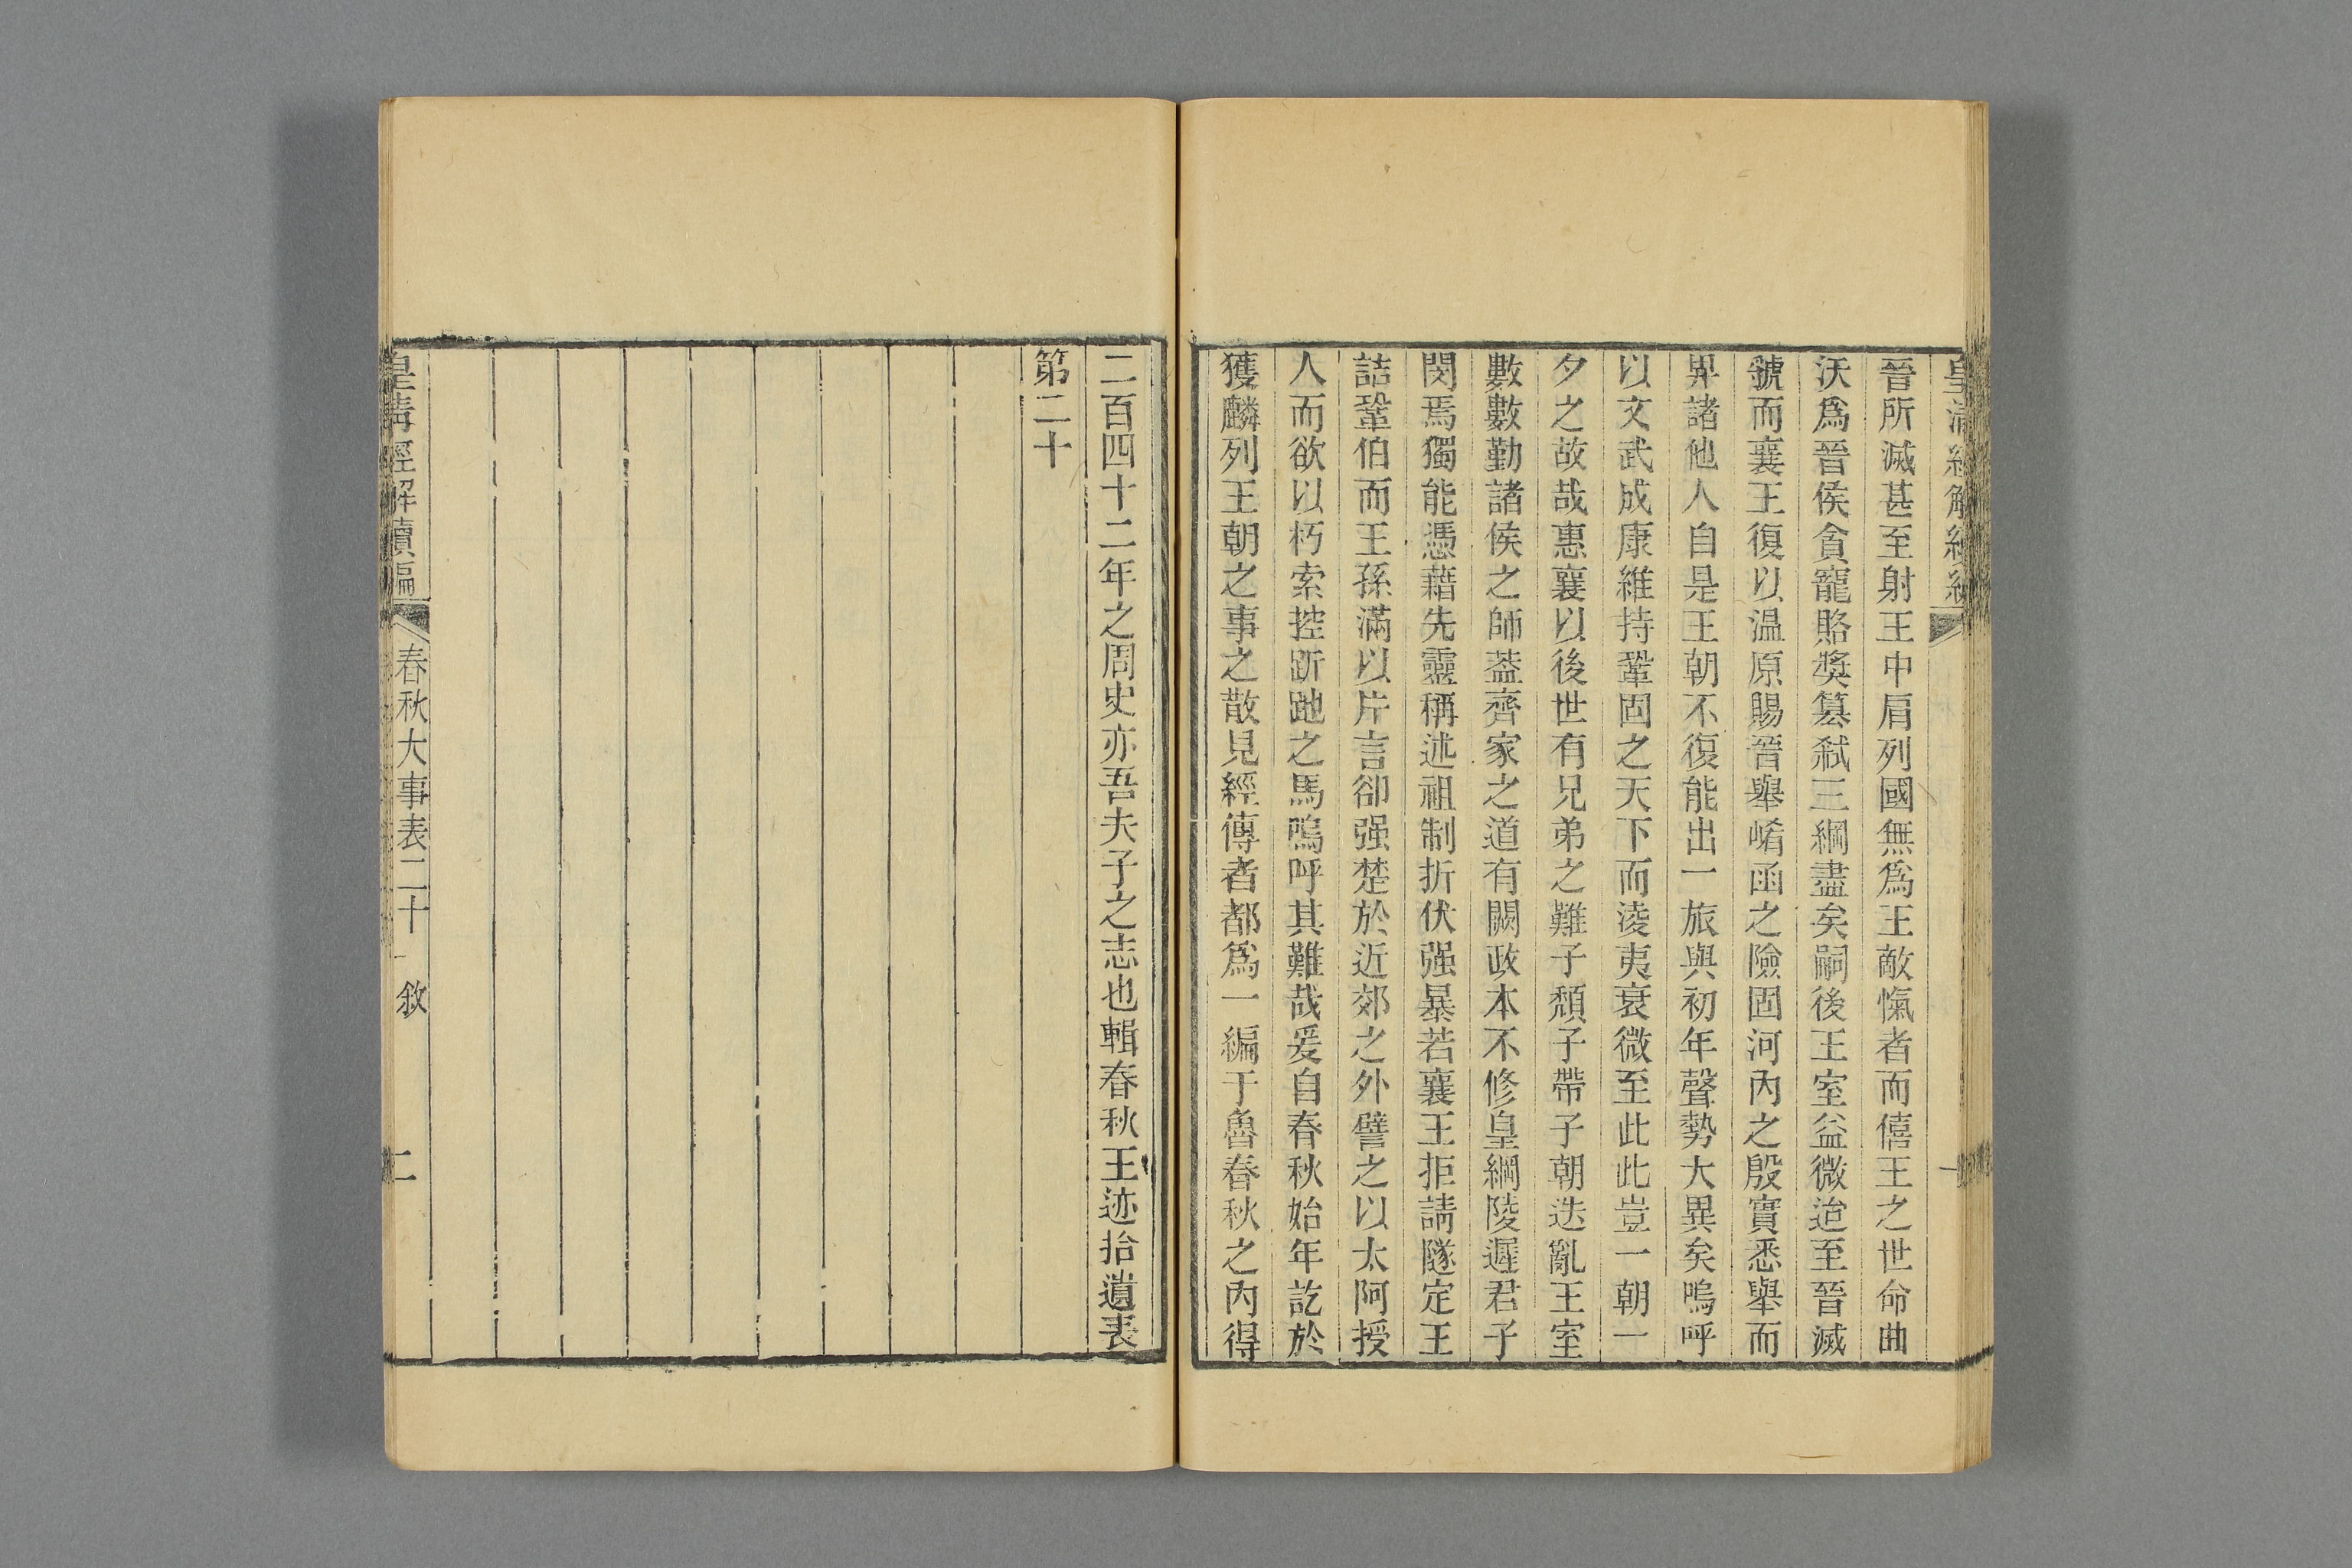 晉所滅甚至射王中肩列國無爲王敵愾者而僖王之世命曲
沃爲晉侯貪寵賂獎篡弒三綱盡矣嗣後王室益微迨至晉滅
虢而襄王復以温原賜晉舉崤函之險固河內之殷實悉舉而
畀諸他人自是王朝不復能出一旅與初年聲勢大異矣嗚呼
以文武成康維持鞏固之天下而淩夷衰微至此此豈一朝一
夕之故哉惠襄以後世有兄弟之難子頹子帶子朝迭亂王室
數數勤諸侯之師葢齊家之道有闕政本不修皇綱陵遲君子
閔焉獨能憑藉先靈稱述祖制折伏强暴若襄王拒請隧定王
詰鞏伯而王孫滿以片言卻强楚於近郊之外譬之以太阿授
人而欲以朽索控趼跑之馬嗚呼其難哉爰自春秋始年訖於
獲麟列王朝之事之散見經傳者都爲一編于魯春秋之內得
二百四十二年之周史亦吾夫子之志也輯春秋王迹拾遺表
第二十
皇清經解續編
春秋大事表二十 敘
二